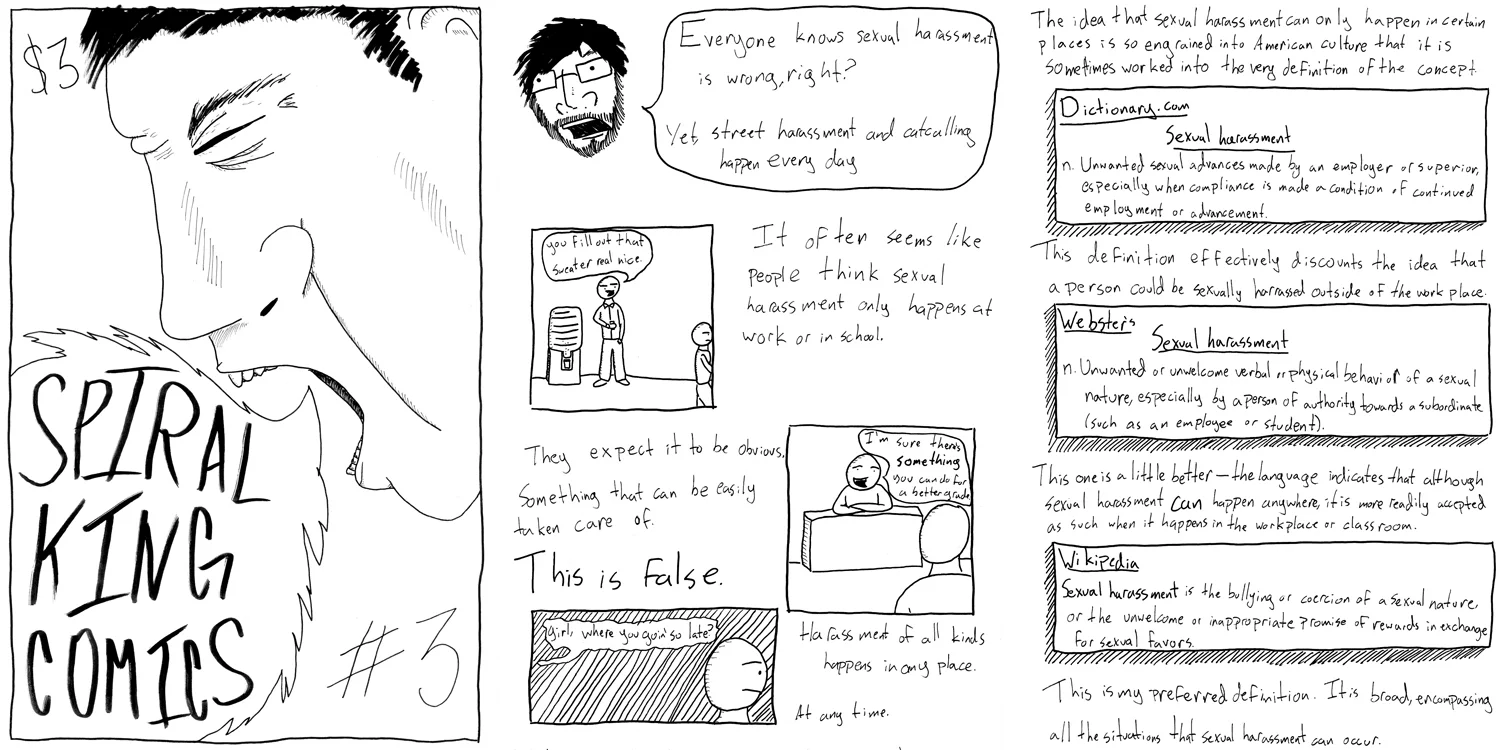 $3
SPIRAL
KING
COMICS
#3
Everyone knows sexual harassment
is wrong, right?
Yet, street harassment and catcalling
happen every day
you fill out that
sweater real nice.
It often seems like
people think sexual
harassment only happens at
work or in school.
They expect it to be obvious,
Something that can be easily
taken care of.
I'm sure there's
something
you can do for
a better grade
This is False.
girl, where you goin' so late?
Harassment of all kinds
happens in any place.
At any time.
The idea that sexual harassment can only happen in certain
places is so engrained into American culture that it is
sometimes worked into the very definition of the concept.
Dictionary.com
Sexual harassment
n. Unwanted sexual advances made by an employer or superior,
especially when compliance is made a condition of continued
employment or advancement.
This definition effectively discounts the idea that
a person could be sexually harrassed outside of the work place.
Webster's
Sexual harassment
n. Unwanted or unwelcome verbal or physical behavior of a sexual
nature, especially by a person of authority towards a subordinate
(such as an employee or student).
This one is a little better — the language indicates that although
sexual harassment can happen anywhere, it is more readily accepted
as such when it happens in the workplace or classroom.
Wikipedia
Sexual harassment is the bullying or coercion of a sexual nature,
or the unwelcome or inappropriate promise of rewards in exchange
for sexual favors.
This is my preferred definition. It is broad, encompassing
all the situations that sexual harassment can occur.